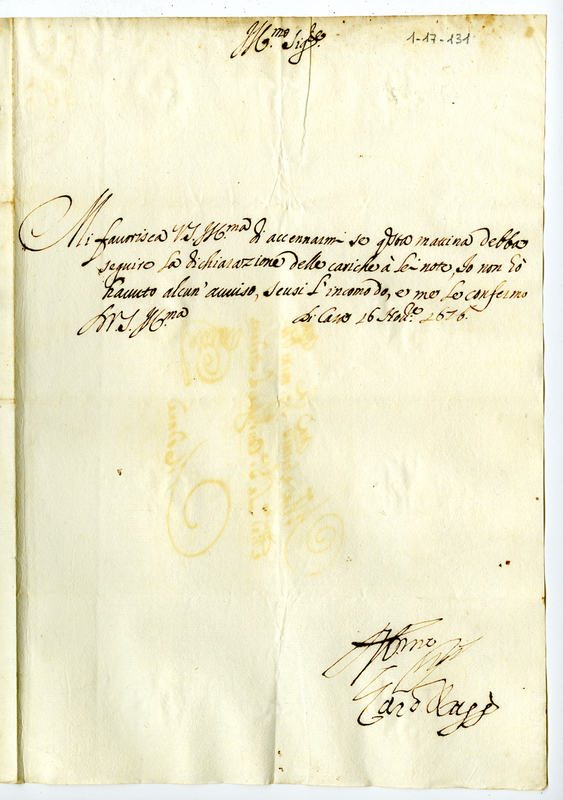 Ill.mo Sig.re
1-17-131
Mi favorisca V.S. Ill.ma di accennarmi se q.sta matina debba
seguire la dichiarazione delle cariche à lei note, Io non hò
havuto alcun' avviso, scusi l'incomodo, e me le confermo
Di V.S. Ill.ma
di Casa 16 Nov.e 1676.
Card Raggi